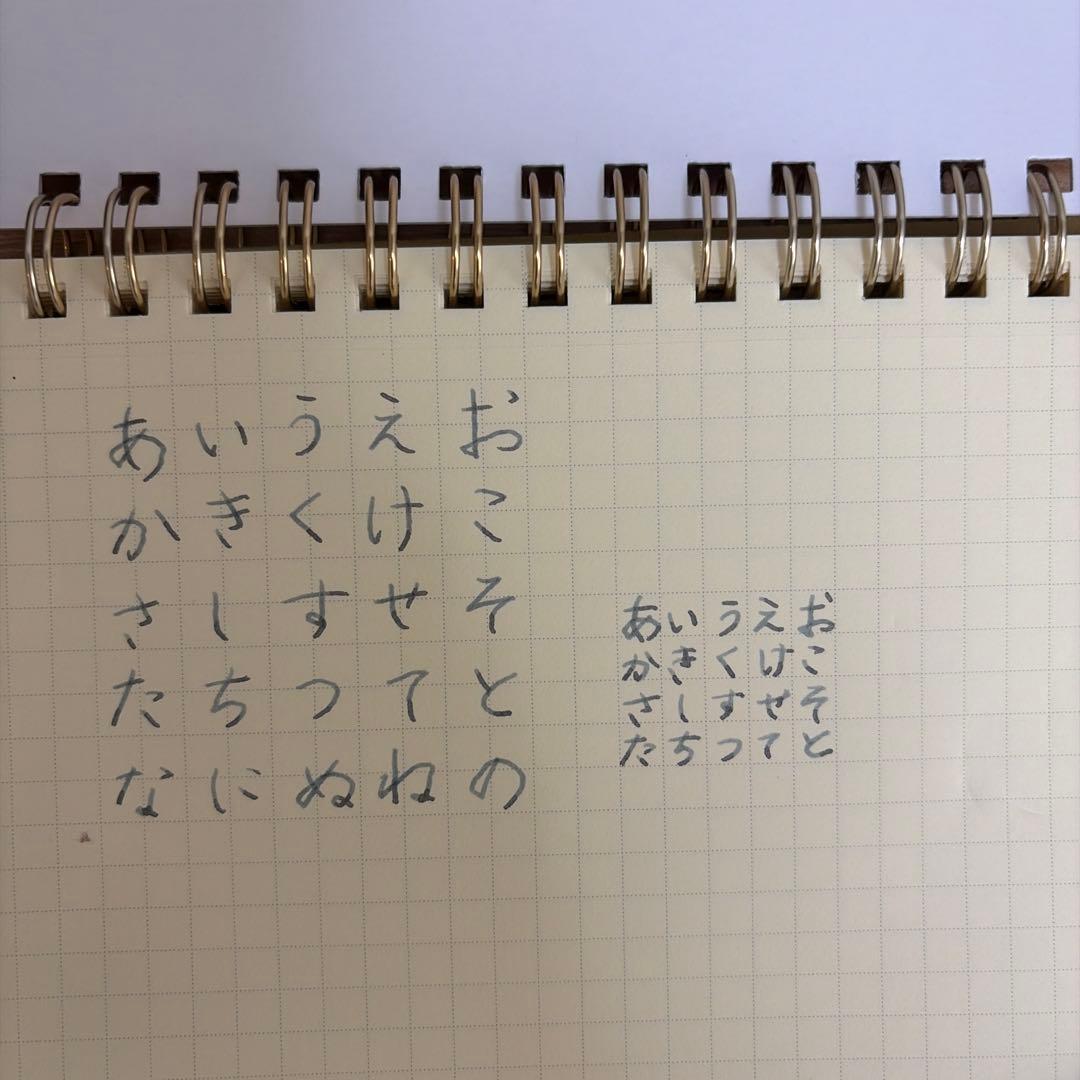 あいうえお
かきくけこ
さしすせそ
たちつてと
なにぬねの
あいうえお
かきくけこ
さしすせそ
たちつてと